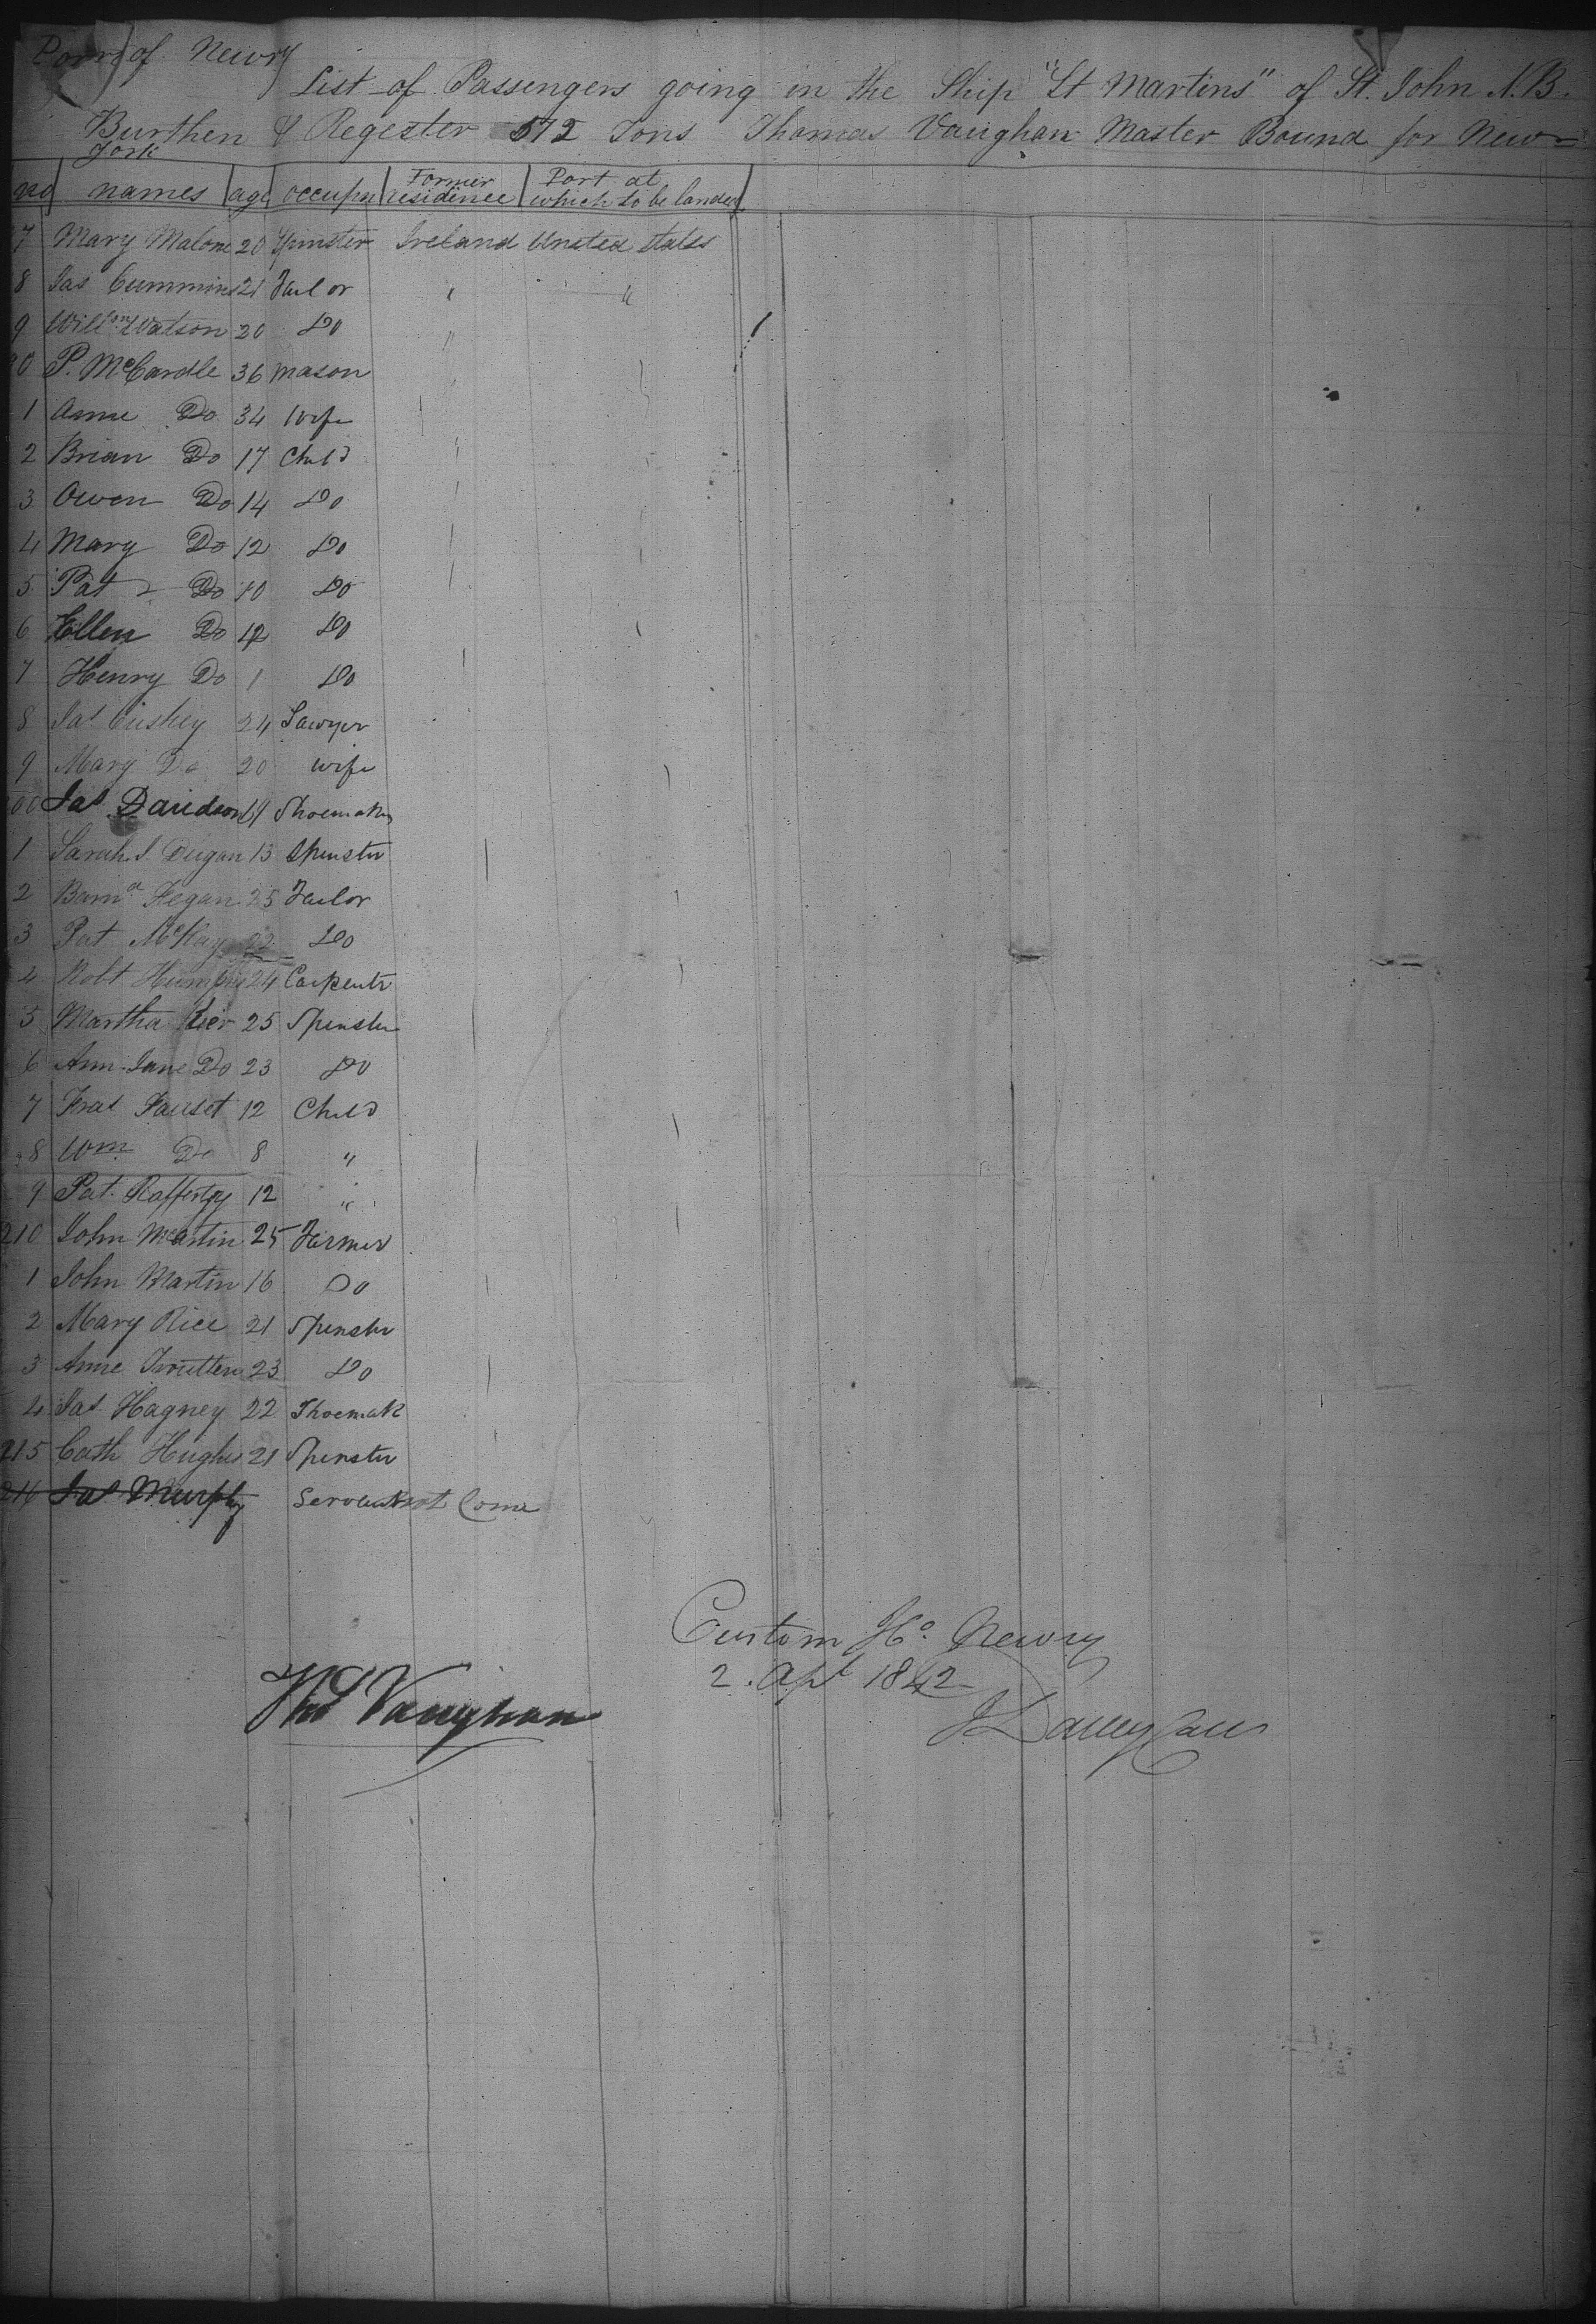 Port of Newry
List of Passengers going in the Ship "St Martins" of St. John N.B.
Burthen & Regester 572 Tons Thomas Vaughan Master Bound for New=
York
no names age occupn Former residence Port at which to be landed
7 Mary Malone 20 Spinster Ireland United States
8 Jas Cummins 21 Tailor " "
9 Willm Watson 20 Do "
0 P. McCardle 36 Mason
1 Anne Do 34 Wife
2 Brian Do 17 Child
3 Owen Do 14 Do
4 Mary Do 12 Do
5 Pat Do 10 Do
6 Ellen Do Do
7 Henry Do 1 Do
8 Jas 24 Sawyer
9 Mary Do 20 wife
00 Jas Davidson 19 Shoemaker
1 Sarah J. Dugan 13 Spinster
2 Barnd Fegan 25 Tailor
3 Pat McKay 22 Do
4 Robt 24 Carpentr
5 Martha Ker 25 Spinster
6 Ann Jane Do 23 Do
7 Fras Fauset 12 Child
8 Wm Do 8 "
9 Pat Rafferty 12 "
210 John Martin 25 Farmer
1 John Martin 16 Do
2 Mary Rice 21 Spinster
3 Anne Troutten 23 Do
4 Jas Hagney 22 Shoemak
215 Cath Hughes 21 Spinster
216 Jas Murphy Servant not Come
Custom Ho. Newry
2. Apl 1842
Thos Vaughan